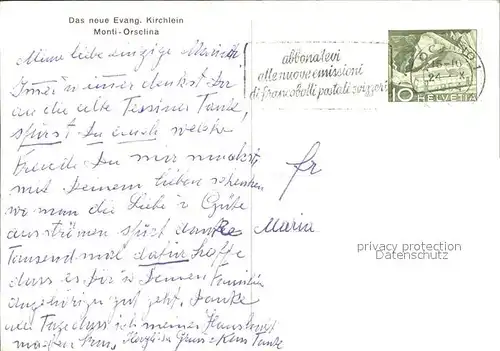 Das neue Evang. Kirchlein
Monti-Orselina
Meine liebe einzige
Immer u immer denkst Du
an die alte Tessiner Tante,
spürst Du auch welche
Freude Du mir machst
mit Deinem lieben schenken
wo man die Liebe u Güte
ausströmen spürt danke Maria
Tausend mal dafür hoffe
dass es Dir u Deinen Familien
angehörigen gut geht. Danke
ich meinen
machen kann, Herzliche Grüsse Tante
fr
abbonatevi
alle nuove emissioni
di francobolli postali svizzeri
10 HELVETIA
privacy protection
Datenschutz